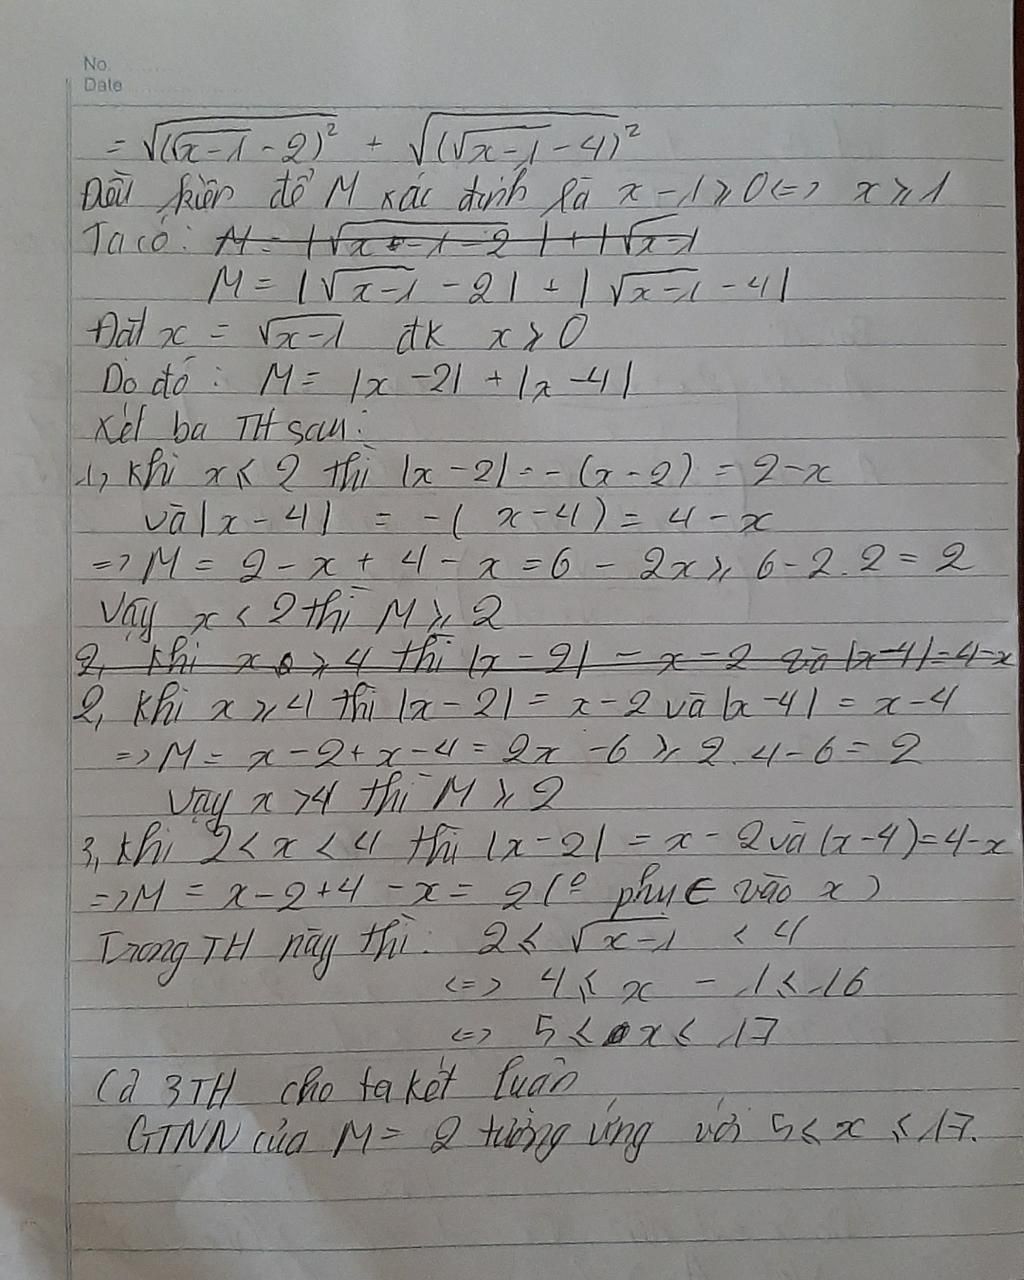 No.
Date
= √((√x-1 - 2)² + √((√x-1 - 4)²
Điều kiện để M xác định là x - 1 ⩾ 0 <=> x ⩾ 1
Ta có: M = |√x - 1 - 2| + |√x-1
M = |√x-1 - 2| + |√x-1 - 4|
Đặt x = √x-1 đk x ⩾ 0
Do đó: M = |x - 2| + |x - 4|
Xét ba TH sau:
1, Khi x ⩽ 2 thì |x - 2| = - (x - 2) = 2 - x
và |x - 4| = - ( x - 4) = 4 - x
=> M = 2 - x + 4 - x = 6 - 2x ⩾ 6 - 2.2 = 2
Vậy x < 2 thì M ⩾ 2
2, Khi x ⩾ 4 thì |x - 2| = x - 2 và |x - 4| = 4 - x
2, Khi x ⩾ 4 thì |x - 2| = x - 2 và |x - 4| = x - 4
=> M = x - 2 + x - 4 = 2x - 6 ⩾ 2.4 - 6 = 2
Vậy x > 4 thì M ⩾ 2
3, Khi 2 < x < 4 thì |x - 2| = x - 2 và |x - 4) = 4 - x
=> M = x - 2 + 4 - x = 2 (º phụ ∈ vào x)
Trong TH này thì: 2 ⩽ √x-1 < 4
<=> 4 ⩽ x - 1 ⩽ 16
<=> 5 ⩽ x ⩽ 17
Cả 3TH cho ta kết luận
GTNN của M = 2 tương ứng với 5 ⩽ x ⩽ 17.